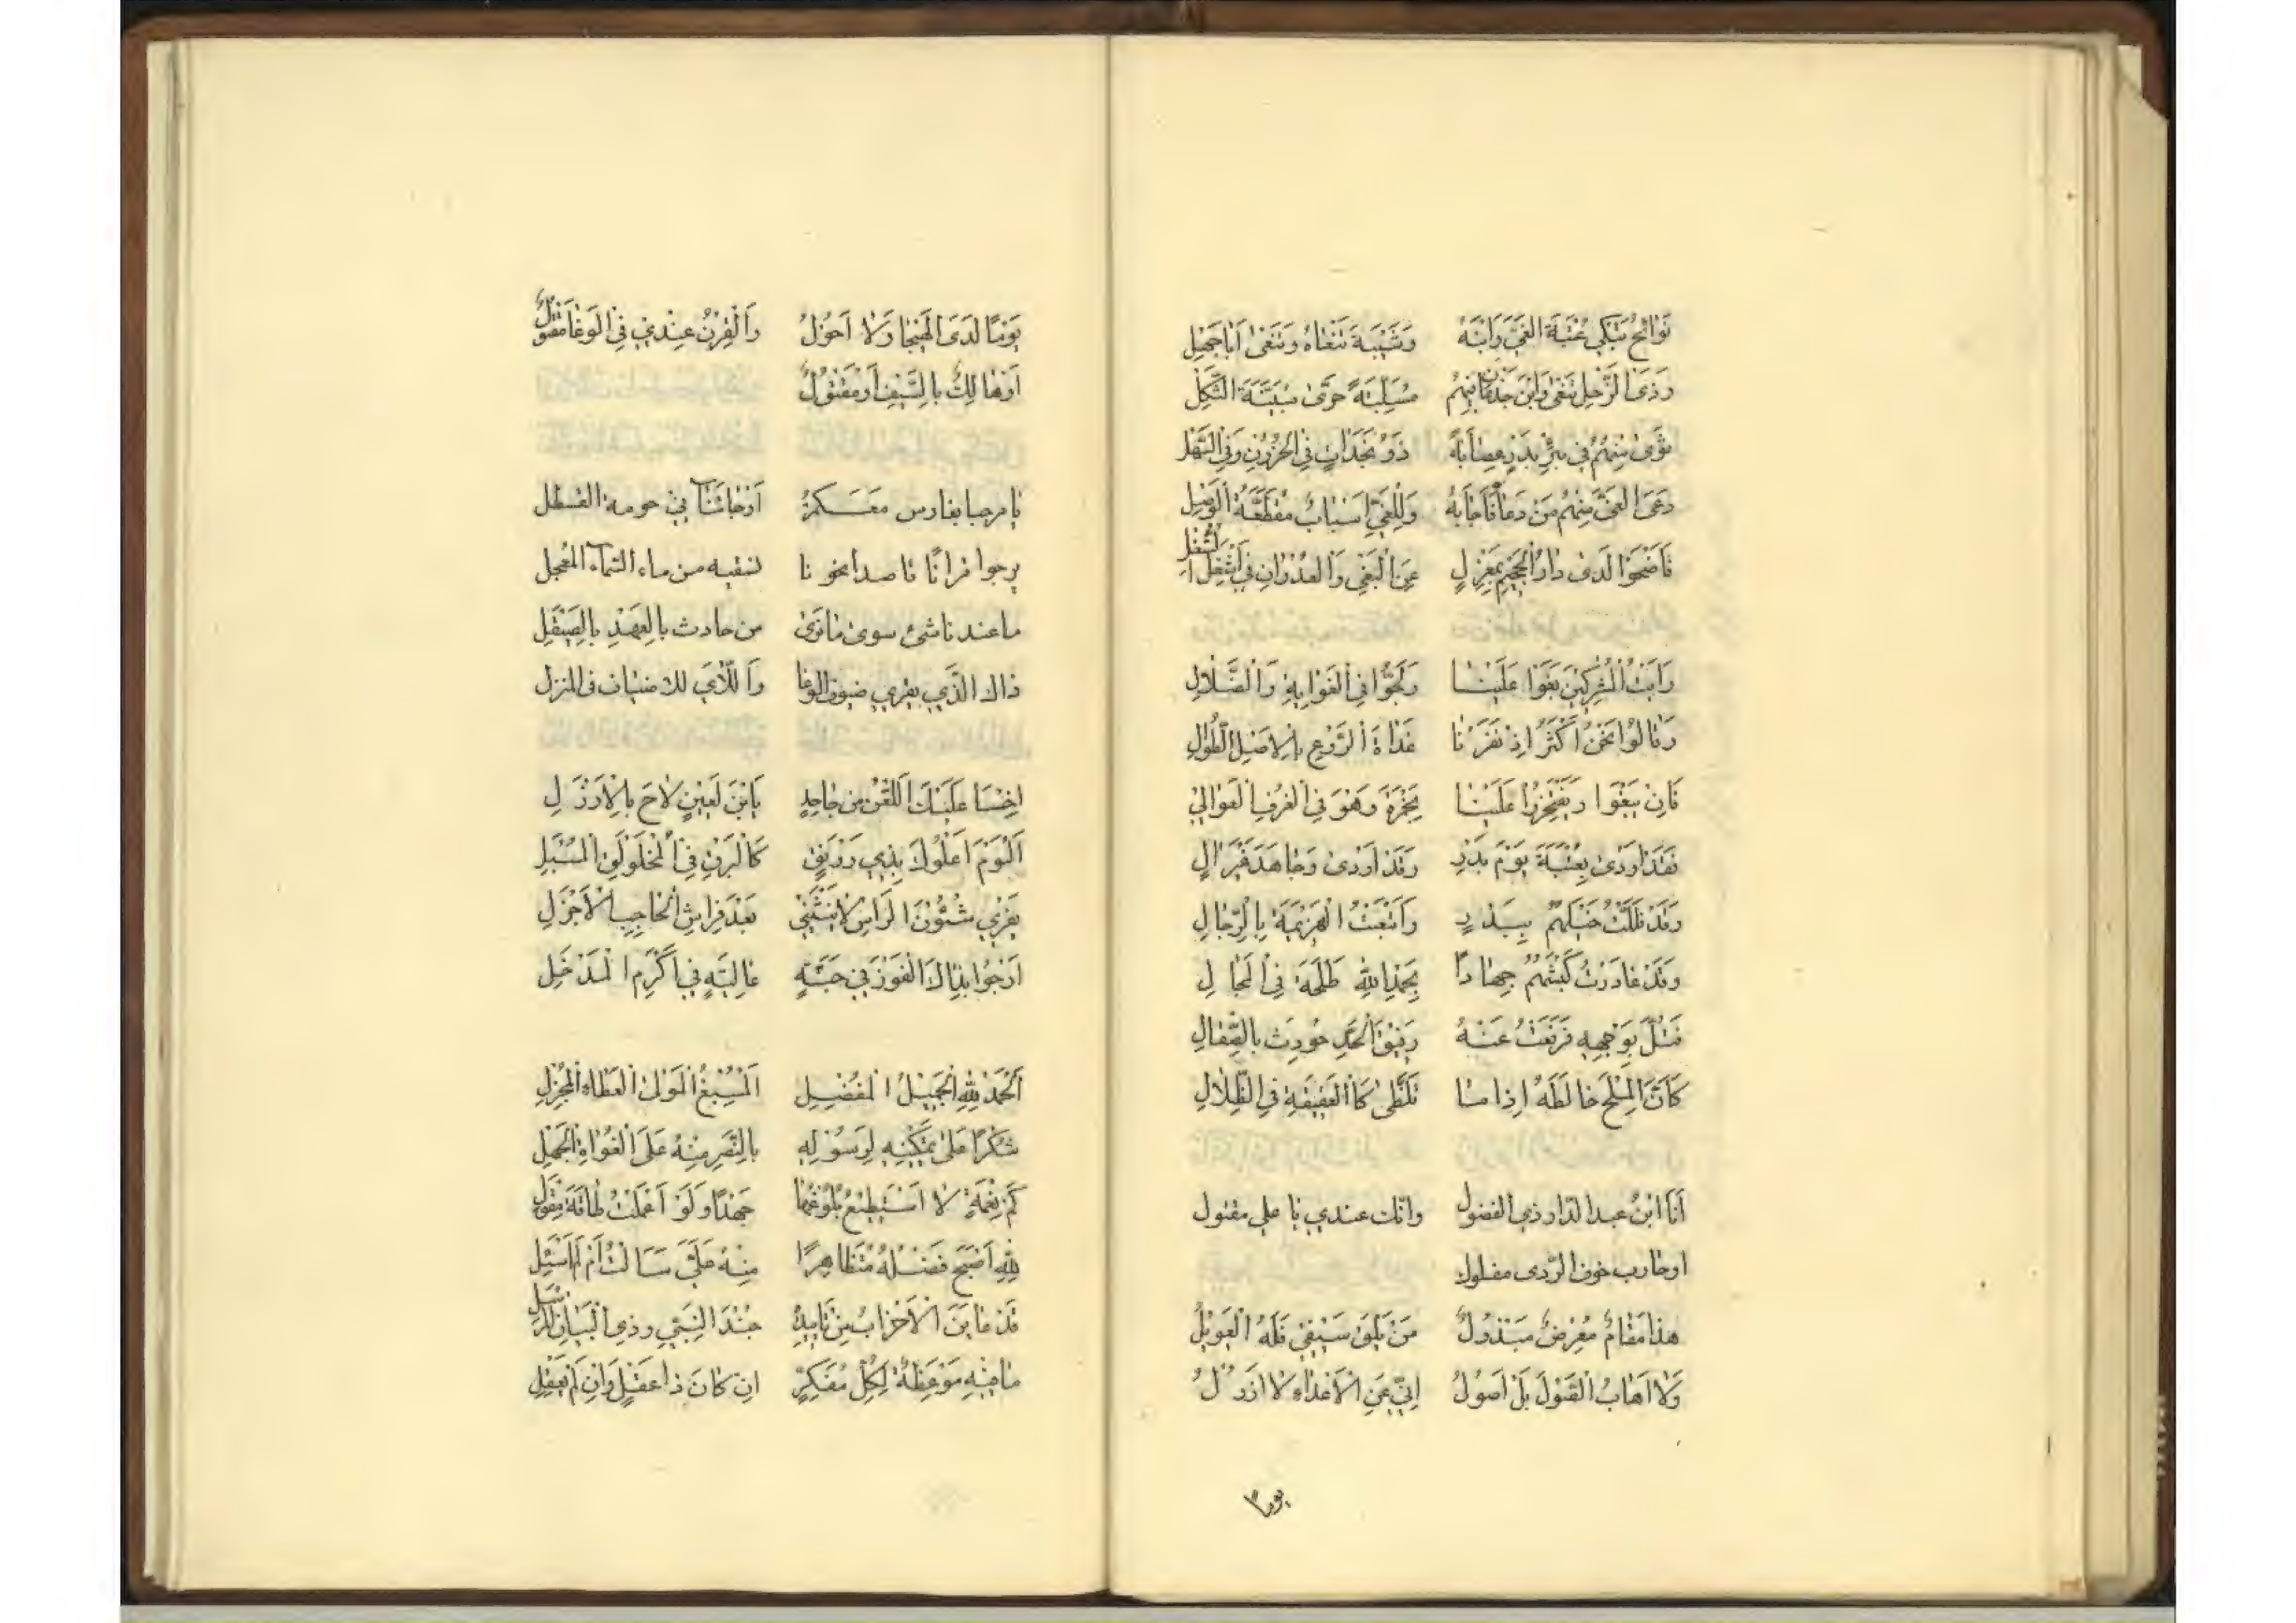 نَوَائِحُ تَبْكِي عُتْبَةَ الغَيِّ وَابْنَهُ وَشَيْبَةَ تَنْعَاهُ وَتَنْعَىٰ أَبَا جَهْلِ
وَذَىَ الرَّجْلِ تَنْعَىٰ وَابْنَ جَذْعَانَ مِنْهُمُ مُسَلِّبَةً حَرَّىٰ مُبَيَّنَةَ الثَّكْلِ
ثَوَىٰ مِنْهُمُ فِي بِئْرِ بَدْرٍ عِصَابَةً ذَوُ نَجَدَاتٍ فِي الحُزُونِ وَفِي السَّهْلِ
دَعَىَ الغَيَّ مِنْهُمْ مَنْ دَعَا فَأَجَابَهُ وَلِلْغَيِّ اَسْبَابٌ مُقَطَّعَةُ الْوَصْلِ
فَاَضْحَوْا لَدَىٰ دَارِ الْجَحِيمِ بِمَعْزِلٍ عَنِ الْبَغْيِ وَالْعُدْوَانِ فِي اَشْغَلِ الشُّغْلِ
رَاَيْتُ الْمُشْرِكِينَ بَغَوْا عَلَيْنَا وَلَجُّوا فِي الْغَوَايَةِ وَالضَّلَالِ
وَقَالُوا نَحْنُ اَكْثَرُ اِذْ نَفَرْنَا غَدَاةَ الرَّوْعِ بِالْاَسَلِ الطُّوَالِ
فَاِنْ يَبْغَوْا وَيَفْتَخِرُوا عَلَيْنَا بِحَمْزَةَ وَهْوَ فِي الْغُرَفِ الْعَوَالِي
فَقَدْ اَوْدَىٰ بِعُتْبَةَ يَوْمَ بَدْرٍ وَقَدْ اَوْدَىٰ وَجَاهَدَ غَيْرَ اٰلٍ
وَقَدْ فَلَلْتُ خَيْلَهُمْ بِبَدْرٍ وَاَتْبَعْتُ الْهَزِيمَةَ بِالرِّجَالِ
وَقَدْ غَادَرْتُ كَبْشَهُمْ جِهَادًا بِحَمْدِ اللهِ طَلْحَةَ فِي الْمَجَالِ
فَتُلَّ بِوَجْهِهِ فَرَفَعْتُ عَنْهُ رَقِيقَ الْحَدِّ حُودِثَ بِالصِّقَالِ
كَاَنَّ الْمِلْحَ خَالَطَهُ اِذَا مَا تَلَظَّىٰ كَالْعَقِيقَةِ فِي الظِّلَالِ
اَنَا ابْنُ عبد الدار ذي الفضول وانّك عندي يا علي مقتول
او هارب خوف الرّدى مفلول
هذا مَقَامٌ مُعْرِضٌ مَبْذُولٌ مَنْ يَلْقَ سَيْفِي فَلَهُ الْعَوِيلُ
وَلَا اَهَابُ الْقَوْلَ بَلْ اَصُولُ اِنِّي عَنِ الْاَعْدَاءِ لَا اَزُولُ
يومًا
يَوْمًا لَدَى الْهَيْجَا وَلَا اَحُولُ وَالْقِرْنُ عِنْدِي فِي الْوَغَا مَقْتُولٌ
اَوْ هَالِكٌ بِالسَّيْفِ اَوْ مَفْتُولٌ
يا مرحبا بفارس مَعَسْكَرُهُ في حومة القسطل
يرجوا قرانًا قاصدا نحونا لنقيه من ماء السّماء المُعجل
ما عند ناشئ سوى ما تَرَىٰ من حادث بِالعَهْدِ بِالصَّيْقَلِ
ذاك الَّذِي يقري ضيوف الوغا وَاللَّاْيَ للاضياف فى المنزل
اِخْسَا عَلَيْكَ اللَّعْنُ مِنْ جَاحِدٍ يَابْنَ لَعِينٍ لَاحَ بِالْاَرْذَلِ
اَلْيَوْمَ اَعْلُوكَ بِذِي رَوْنَقٍ كَالْبَرْقِ فِي الْمُخْلَوْلَقِ الْمُسْبَلِ
يَفْرِي شُئُونَ الرَّاْسِ لَا يَنْثَنِي بَعْدَ فِرَاشِ الْحَاجِبِ الْاَجْزَلِ
اَرْجُوا بِذَاكَ الْفَوْزَ فِي جَنَّةٍ عَالِيَةٍ فِي اَكْرَمِ الْمَدْخَلِ
اَلْحَمْدُ لِلّٰهِ الْجَمِيلِ الْمُفْضِلِ اَلْمُسْبِغُ الْمَوْلَى الْعَطَاءَ الْمُجْزِلِ
شُكْرًا عَلَىٰ تَمْكِينِهِ لِرَسُولِهِ بِالنَّصْرِ مِنْهُ عَلَى الْغُوَاةِ الْجُهَّلِ
كَمْ نِعْمَةٍ لَا اَسْتَطِيعُ بُلُوغَهَا جَهْدًا وَلَوْ اَعْمَلْتُ طَاقَةَ مِقْوَلِ
لِلّٰهِ اَصْبَحَ فَضْلُهُ مُتَظَاهِرًا مِنْهُ عَلَيَّ سَاَلْتُ اَمْ لَمْ اَسْئَلِ
قَدْ عَايَنَ الْاَحْزَابُ مِنْ تَاْيِيدِ جُنْدَ النَّبِيِّ وذِي الْبَيَانِ الْمُرْسَلِ
مَا فِيهِ مَوْعِظَةٌ لِكُلِّ مُفَكِّرٍ اِنْ كَانَ ذَا عَقْلٍ وَاِنْ لَمْ يَعْقِلِ